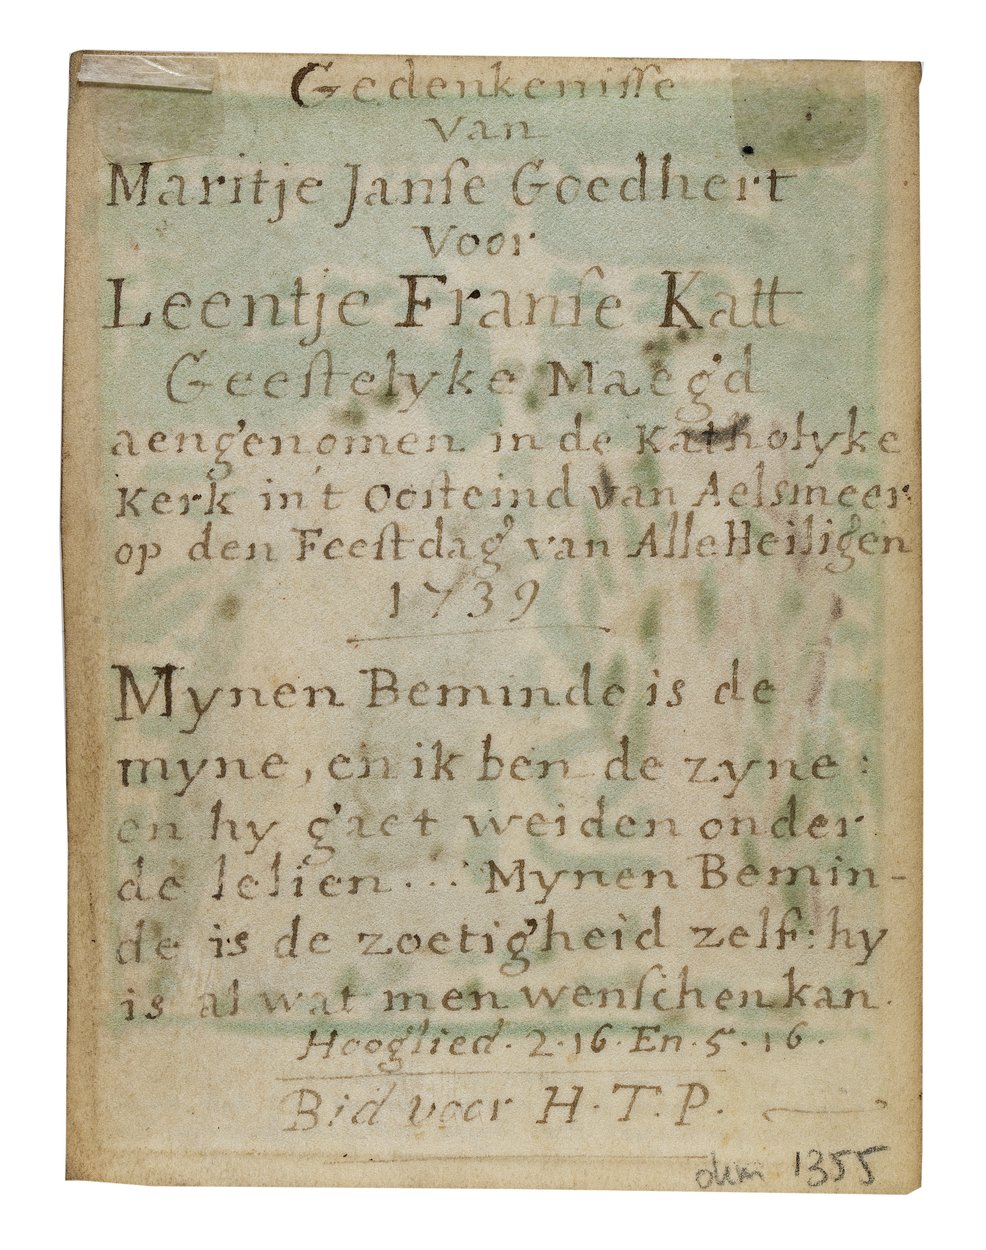 Gedenkenisse
van
Maritje Janse Goedhert
voor
Leentje Franse Katt
Geestelyke Maegd
aengenomen in de Katholyke
Kerk in't Oosteind van Aelsmeer
op den Feestdag van Alle Heiligen
1739
Mynen Beminde is de
myne, en ik ben de zyne:
en hy gaet weiden onder
de lelien... Mynen Bemin-
de is de zoetigheid zelf: hy
is al wat men wenschen kan.
Hooglied. 2.16. En. 5.16.
Bid voor H. T. P.
1355